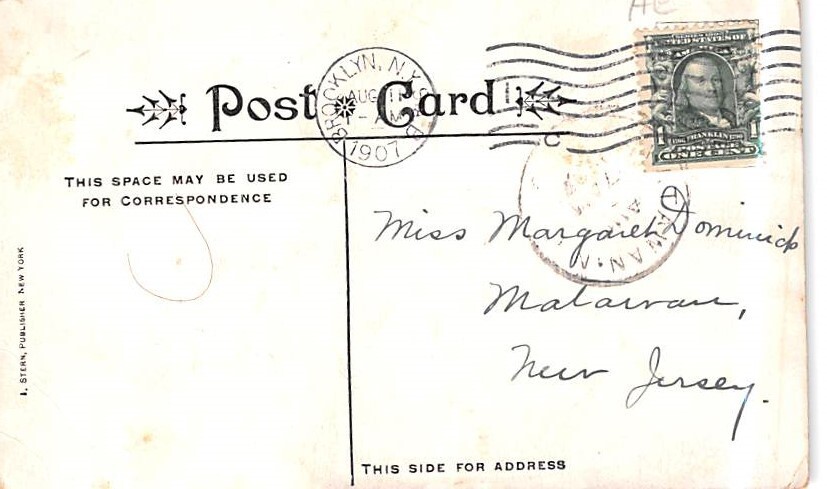 AE
Post Card
BROOKLYN, N.Y.
AUG 11
AM
1907
B
SERIES 1902
UNITED STATES OF
AMERICA
1 FRANKLIN 1
POSTAGE
ONE CENT
THIS SPACE MAY BE USED
FOR CORRESPONDENCE
Miss Margaret Dominick
Matawan,
New Jersey.
I. STERN, PUBLISHER NEW YORK
THIS SIDE FOR ADDRESS